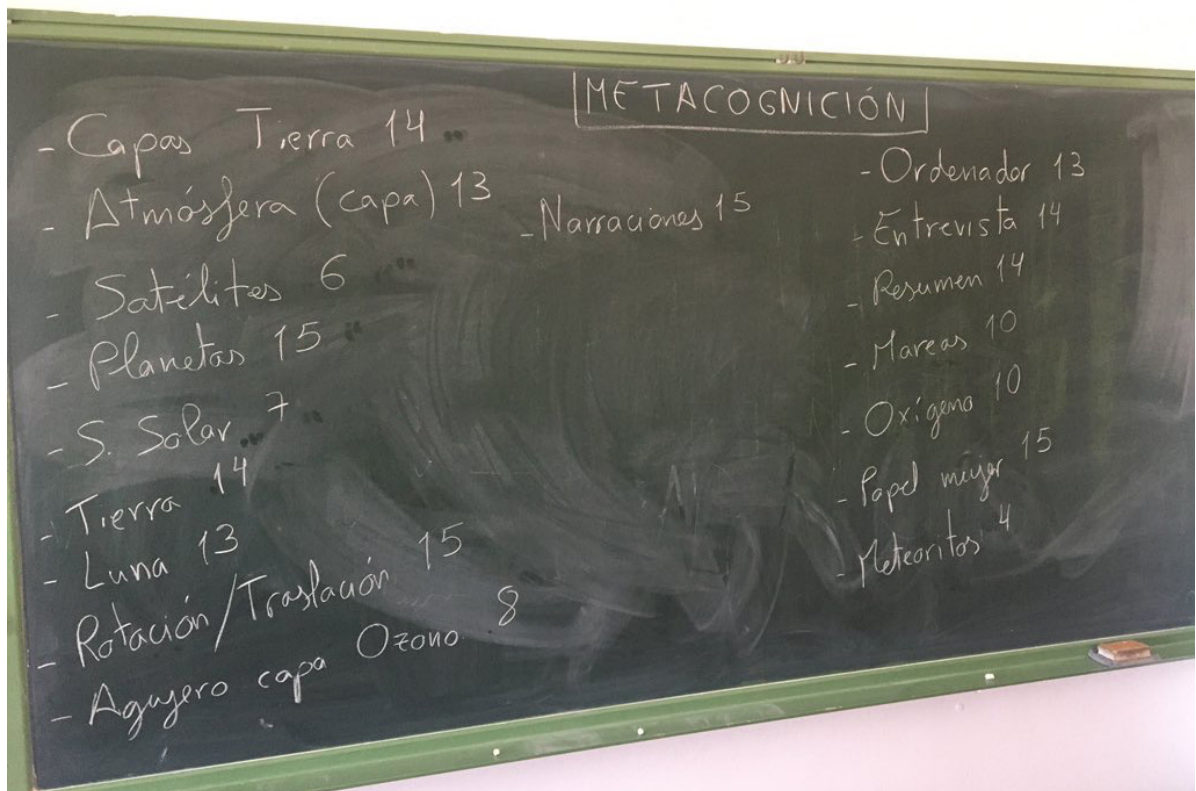 METACOGNICIÓN
- Capas Tierra 14
- Atmósfera (capa) 13
- Satélites 6
- Planetas 15
- S. Solar 7
- Tierra 14
- Luna 13
- Rotación/Traslación 15
- Agujero capa Ozono 8
- Narraciones 15
- Ordenador 13
- Entrevista 14
- Resumen 14
- Mareas 10
- Oxígeno 10
- Papel mujer 15
- Meteoritos 4